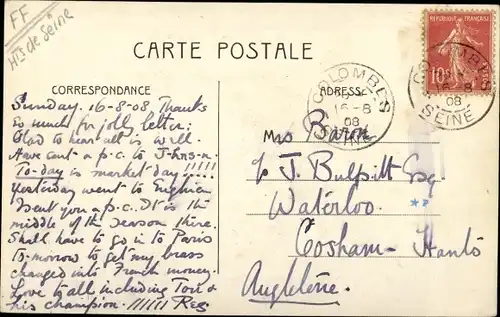 FF
Hts de Seine
CARTE POSTALE
CORRESPONDANCE
ADRESSE
RÉPUBLIQUE FRANÇAISE
10c
COLOMBES
16-8
08
SEINE
COLOMBES
16-8
08
SEINE
Sunday. 16-8-08. Thanks
so much for jolly letter;
Glad to hear all is well.
Have sent a p.c. to J-hns-n.
To-day is market day !!!!!
Yesterday went to Enghien
I sent you a p.c. It is the
middle of the season there.
Shall have to go in to Paris
to-morrow to get my brass
changed into French money.
Love to all including Tom &
his champion. !!!!!! Reg
Mrs Baron
c/o J. Bulpitt Esq
Waterloo.
Cosham - Hants
Angleterre.